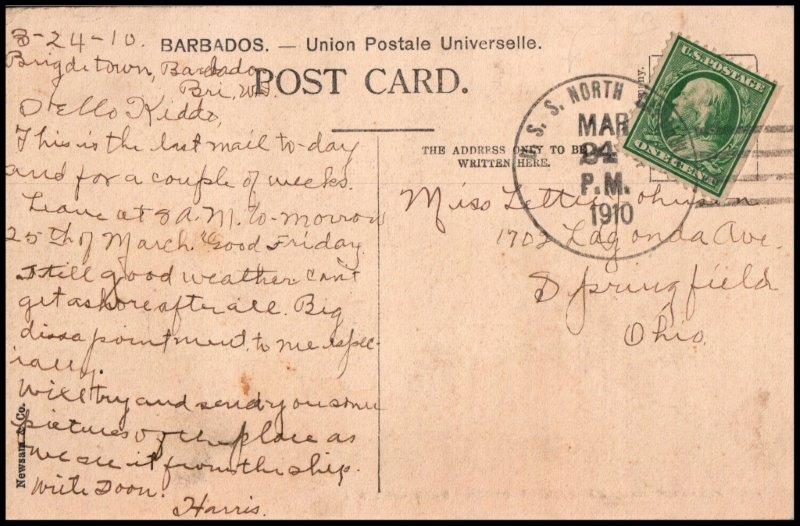 3-24-10.
Brigdetown, Barbado
Bri, W.I.
BARBADOS. — Union Postale Universelle.
POST CARD.
THE ADDRESS ONLY TO BE
WRITTEN HERE.
Hello Kiddo,
This is the last mail to-day
and for a couple of weeks.
Leave at 8 A.M. to-morrow
25th of March. Good Friday
Still good weather can't
get ashore after all. Big
dissapointment to me espec-
ially.
Will try and send you some
pictures of the place as
we see it from the ship.
Write soon.
Harris.
Newsam & Co.
U.S. POSTAGE
ONE CENT
U. S. S. NORTH
MAR
24
P.M.
1910
Miss Lettie Johnson
1702 Lagonda Ave.
Springfield
Ohio.